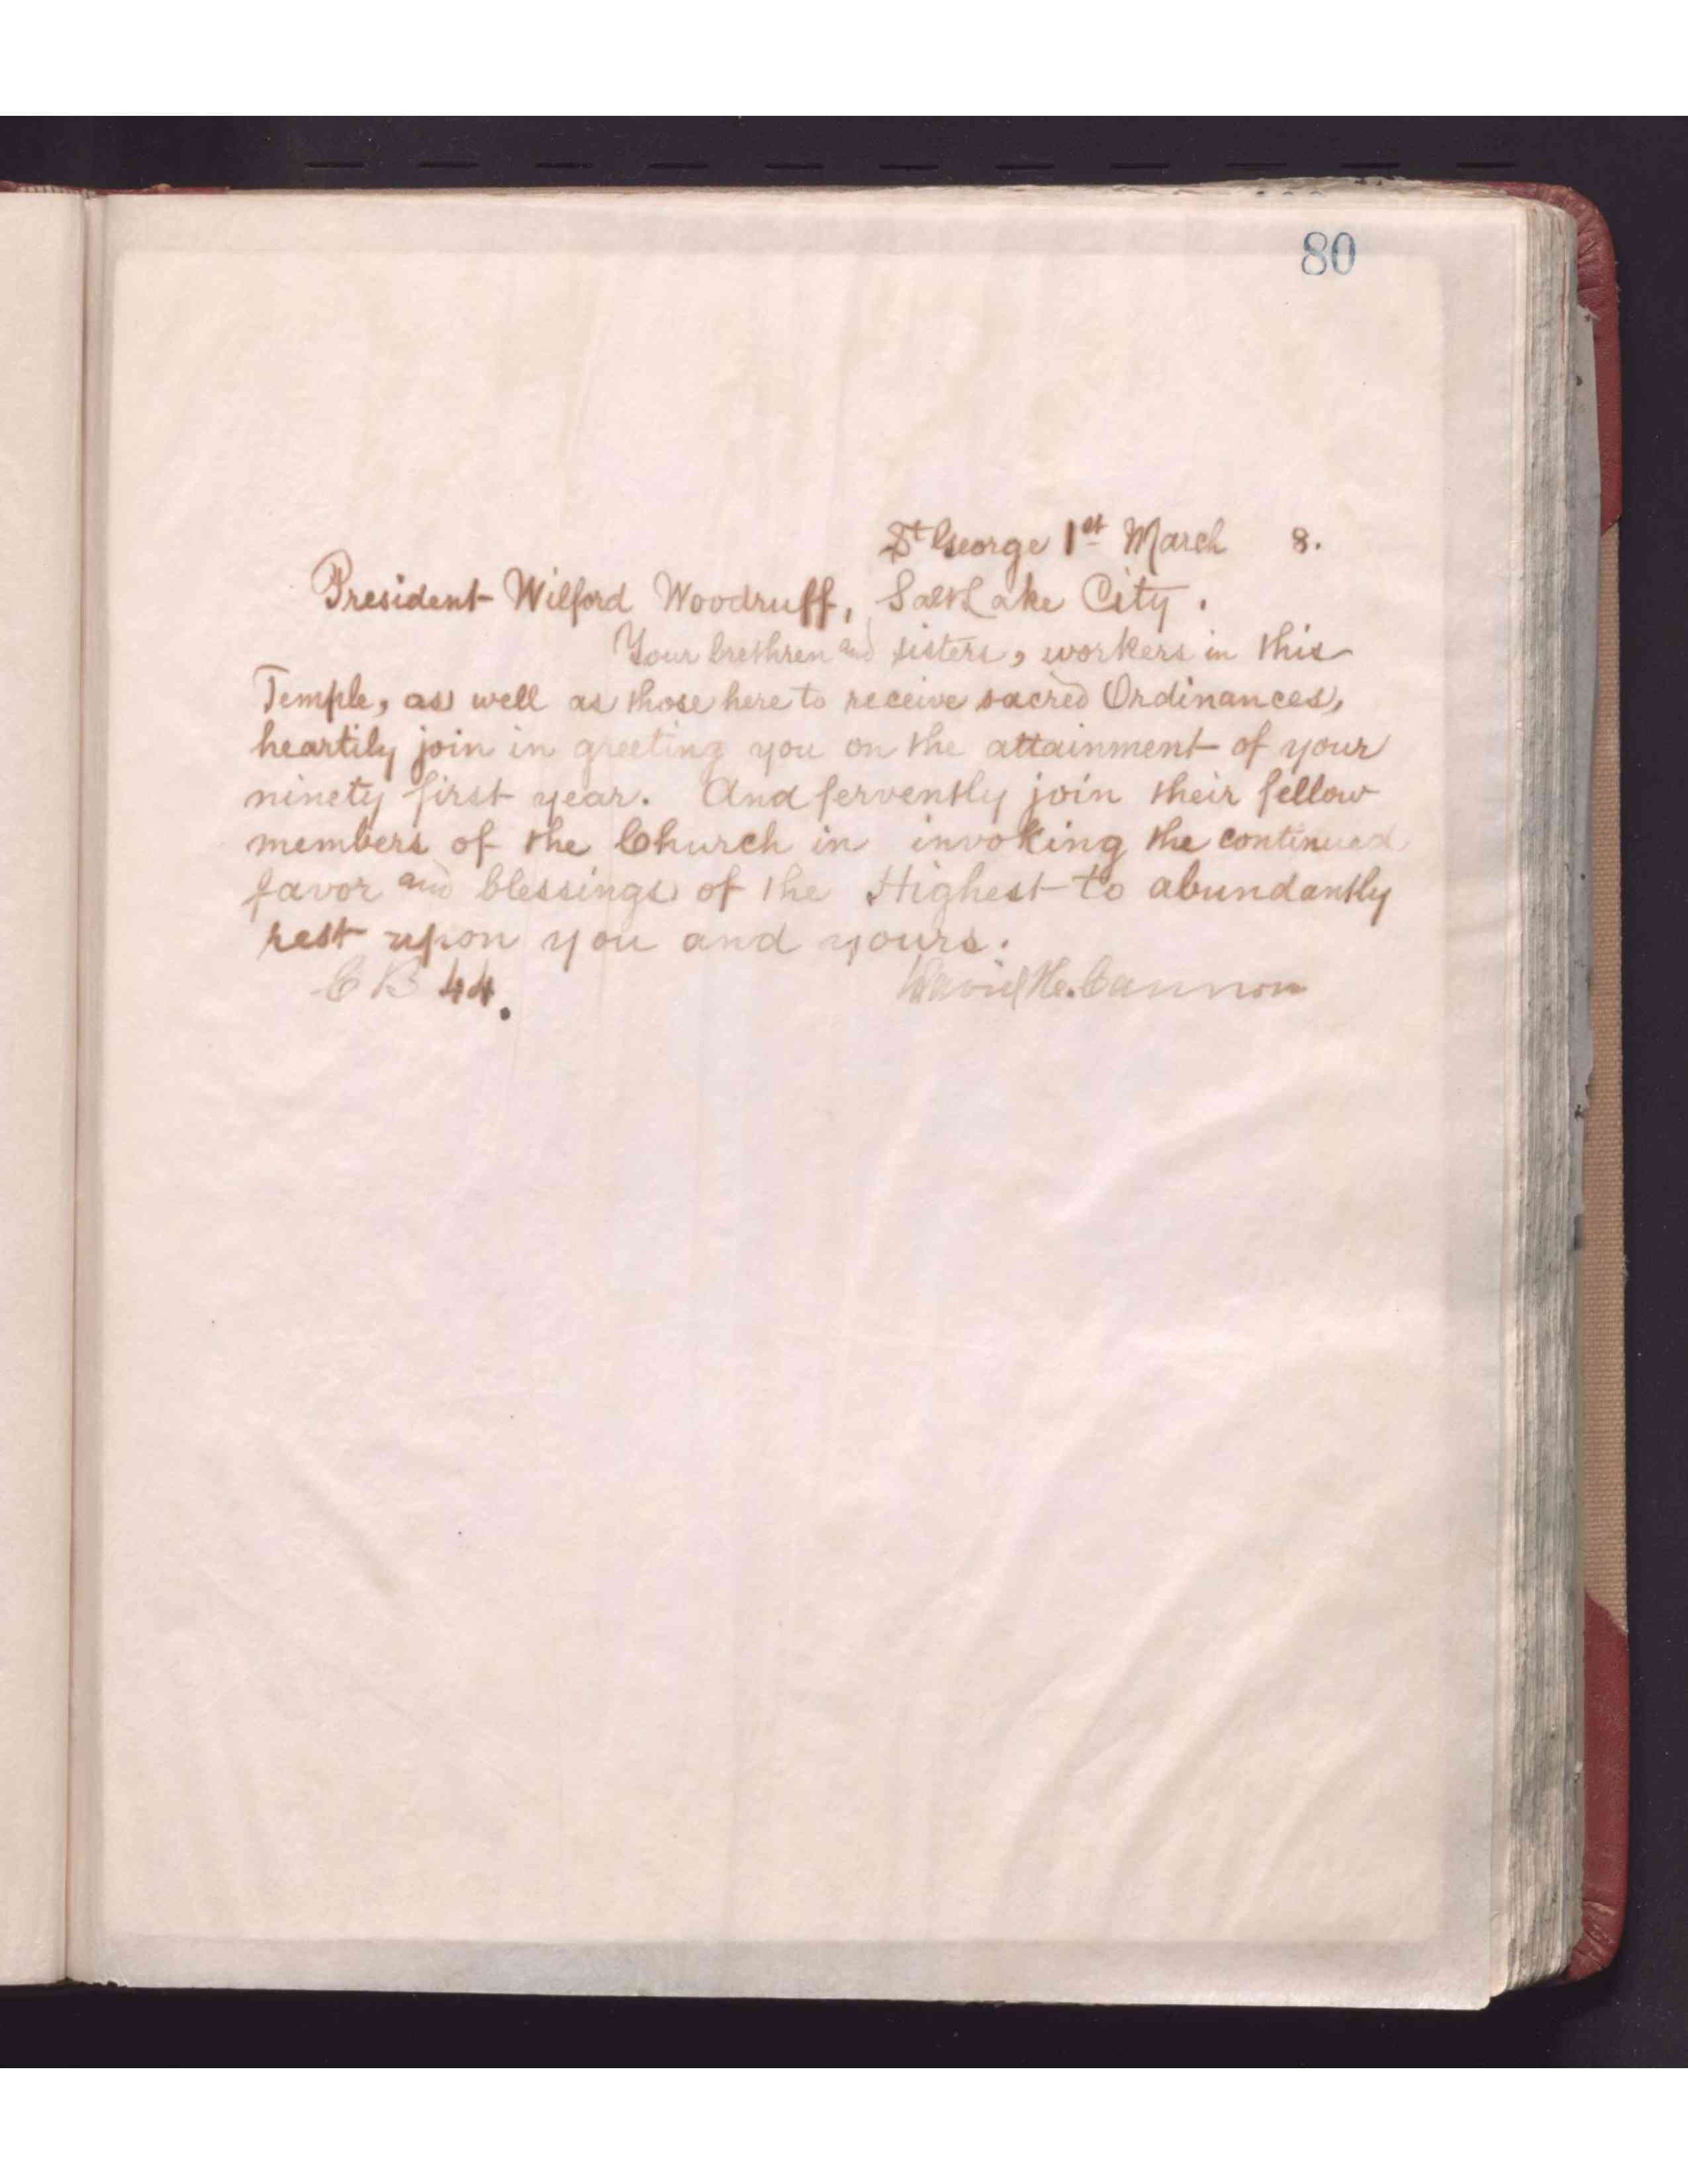 80
St George 1st March 8.
President Wilford Woodruff, Salt Lake City.
Your brethren and sisters, workers in this
Temple, as well as those here to receive sacred Ordinances,
heartily join in greeting you on the attainment of your
ninety first year. And fervently join their fellow
members of the Church in invoking the continued
favor and blessings of the Highest to abundantly
rest upon you and yours.
C B 44. David H. Cannon